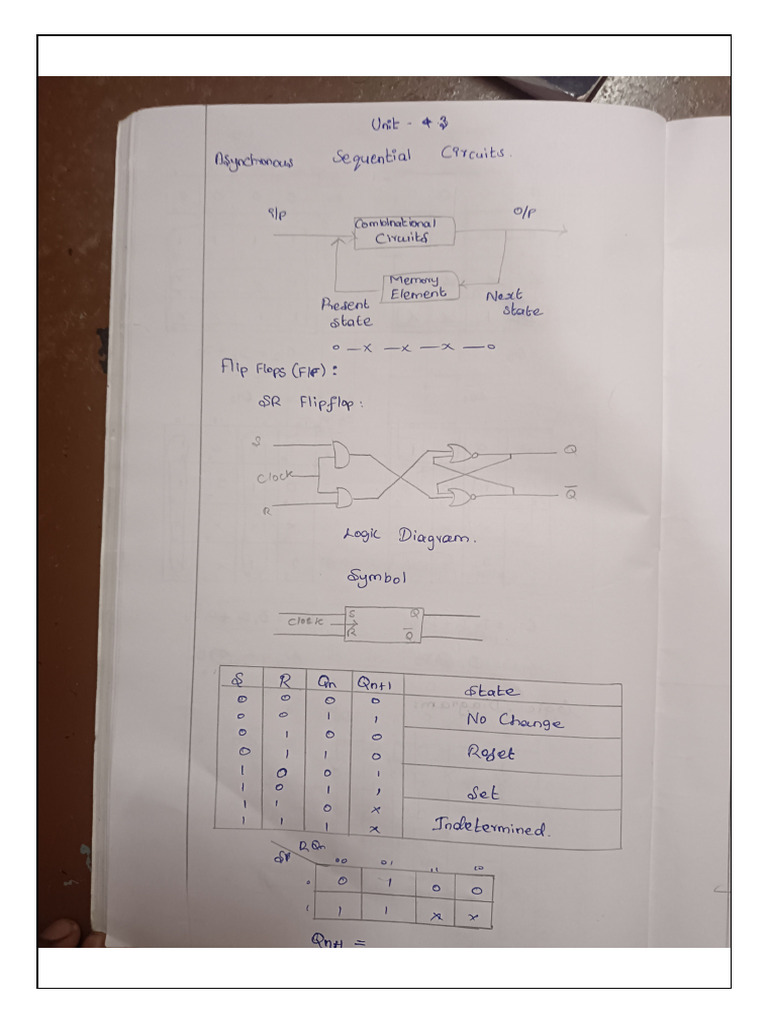 Unit - 3
Asynchronous Sequential Circuits.
I/P
O/P
Combinational
Circuits
Memory
Element
Present
state
Next
state
o —x —x —x —o
Flip Flops (F/F) :
SR Flipflop :
S
Clock
R
Q
Q̅
Logic Diagram.
Symbol
S Q
Clock
R Q̅
S R Qn Qn+1 State
0 0 0 0
0 0 1 1 No Change
0 1 0 0
0 1 1 0 Reset
1 0 0 1
1 0 1 1 Set
1 1 0 x
1 1 1 x Indetermined.
R Qn
00 01 11 10
0 0 1 0 0
1 1 1 x x
Qn+1 =